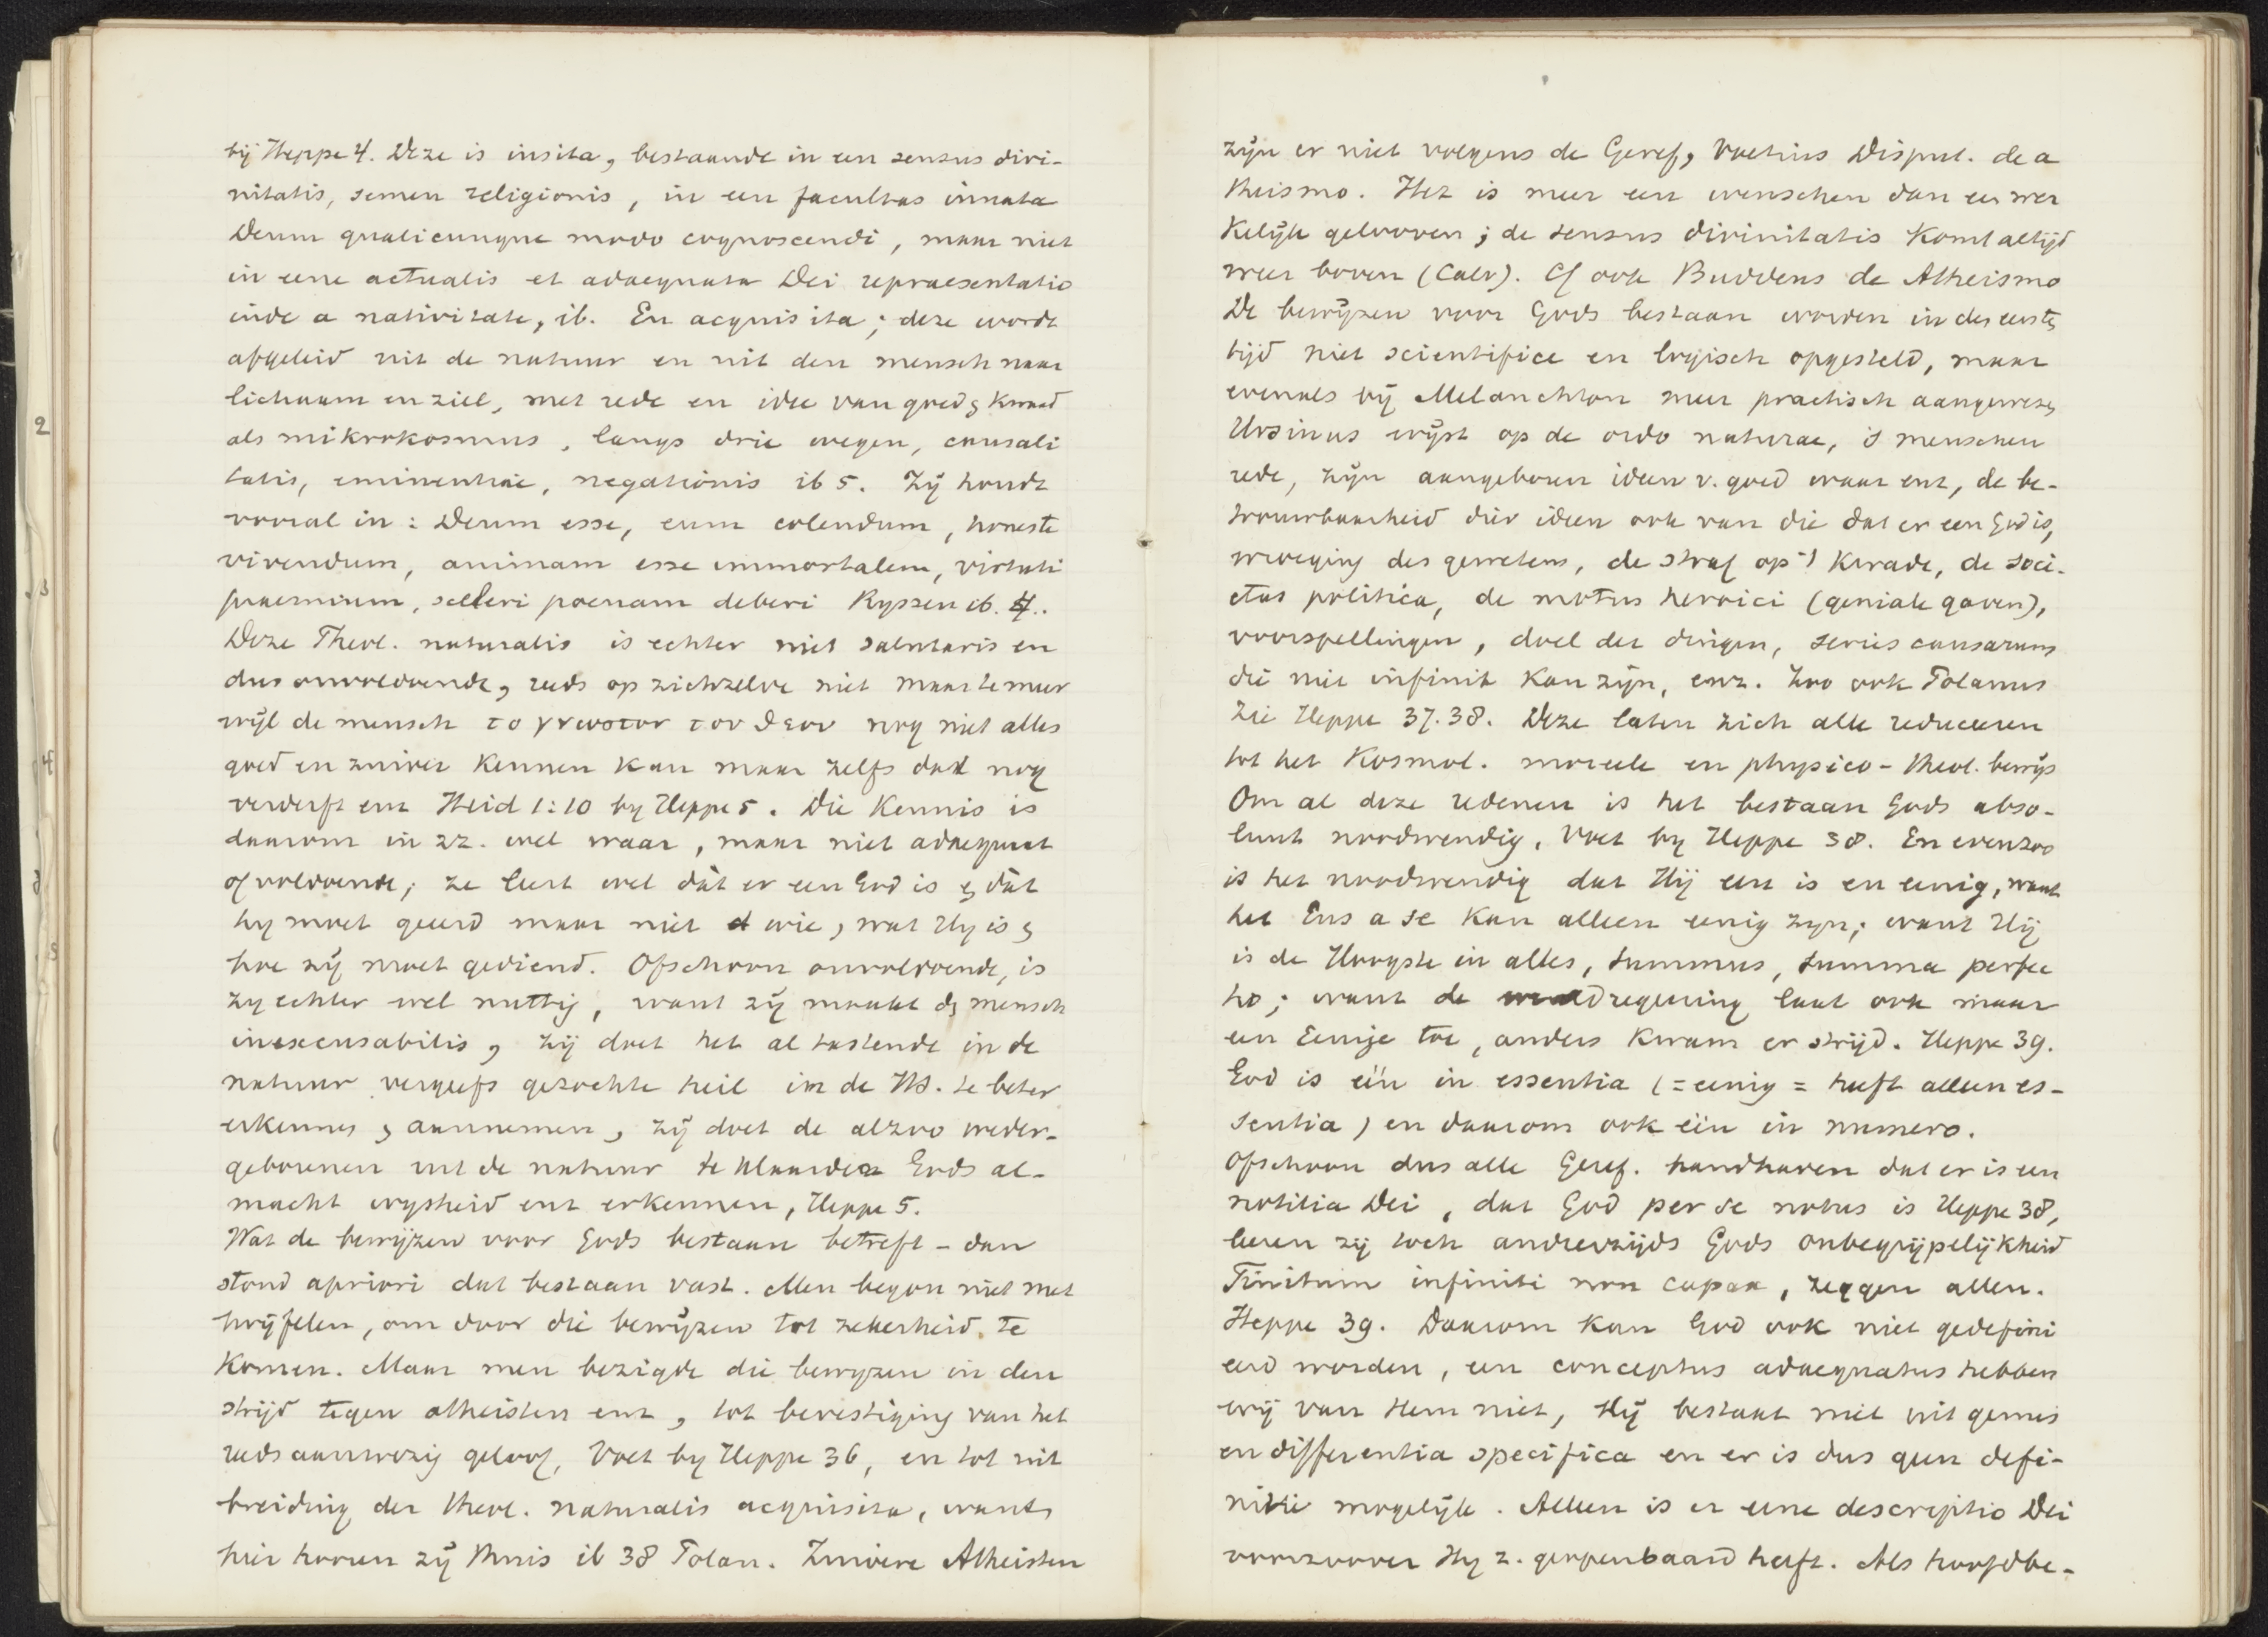 bij Heppe 4. Deze is insita, bestaande in een sensus divi-
nitatis, semen religionis, in een facultas innata
Deum qualicunque modo cognoscendi, maar niet
in eene actualis et adaequata Dei repraesentatio
inde a nativitate, ib. En acquisita; deze wordt
afgeleid uit de natuur en uit den mensch naar
lichaam en ziel, met rede en idee van goed & kwaad
als mikrokosmus, langs drie wegen, causali
tatis, eminentiae, negationis ib 5. Zij houdt
vooral in: Deum esse, eum colendum, honeste
vivendum, animam esse immortalem, virtuti
praemium, sceleri poenam deberi Ryssen ib. 4..
Deze Theol. naturalis is echter niet salutaris en
dus onvoldoende, reeds op zichzelve niet maar te meer
wijl de mensch το γνωστον του θεου nog niet alles
goed en zuiver kennen kan maar zelfs dat nog
verderft enz Heid 1:10 by Heppe 5. Die kennis is
daarom in zz. wel waar, maar niet adaequaat
of voldoende; ze leert wel dát er een God is & dát
hy moet geeerd maar niet wie, wat Hy is &
hoe zij moet gediend. Ofschoon onvoldoende, is
zy echter wel nuttig, want zij maakt d& mensch
inexcusabilis, zij doet het al tastende in de
natuur vergeefs gezochte heil in de HS. te beter
erkennen & aannemen, zij doet de alzoo weder-
geborenen uit de natuur te klaarder Gods al-
macht wysheid enz erkennen, Heppe 5.
Wat de bewijzen voor Gods bestaan betreft - dan
stond apriori dat bestaan vast. Men begon niet met
twijfelen, om door die bewijzen tot zekerheid te
komen. Maar men bezigde die bewyzen in den
strijd tegen atheisten enz, tot bevestiging van het
reeds aanwezig geloof, Voet by Heppe 36, en tot uit
breiding der theol. naturalis acquisita, want
hier hooren zij thuis ib 38 Polan. Zuivere Atheisten
zijn er niet volgens de Geref, Voetius Disput. de a
theismo. Het is meer een wenschen dan een wer
kelijk gelooven; de sensus divinitatis komt altijd
weer boven (Calv). Cf ook Buddeus de Atheismo
De bewijzen voor Gods bestaan worden in des eerste
tijd niet scientifice en logisch opgesteld, maar
evenals bij Melanchton meer practisch aangewezen
Ursinus wijst op de ordo naturae, 's menschen
rede, zijn aangeboren ideen v. goed waar enz, de be-
trouwbaarheid dier ideen ook van die dat er een God is,
wroeging des gewetens, de straf op 't kwade, de soci-
etas politica, de motus heroici (geniale gaven),
voorspellingen, doel der dingen, series causarum
die niet infinit kan zijn, enz. Zoo ook Polanus
Zie Heppe 37.38. Deze laten zich alle reduceeren
tot het kosmol. moreele en physico-theol. bewijs
Om al deze redenen is het bestaan Gods abso-
luut noodwendig, Voet by Heppe 38. En evenzoo
is het noodwendig dat Hij een is en eenig, want
het Ens a se kan alleen eenig zyn; want Hij
is de Hoogste in alles, summus, summa perfec
tio; want de wereldregeering laat ook maar
een Eenige toe, anders kwam er strijd. Heppe 39.
God is één in essentia (= eenig = heeft alleen es-
sentia) en daarom ook één in numero.
Ofschoon dus alle Geref. handhaven dat er is een
notitia Dei, dat God per se notus is Heppe 38,
leeren zij toch anderzijds Gods onbegrijpelijkheid
Finitum infiniti non capax, zeggen allen.
Heppe 39. Daarom kan God ook niet gedefini
eerd worden, een conceptus adaequatus hebben
wij van Hem niet, Hij bestaat niet uit genus
en differentia specifica en er is dus geen defi-
nitie mogelijk. Alleen is er eene descriptio Dei
voorzoover Hy z. geopenbaard heeft. Als hoofdbe-